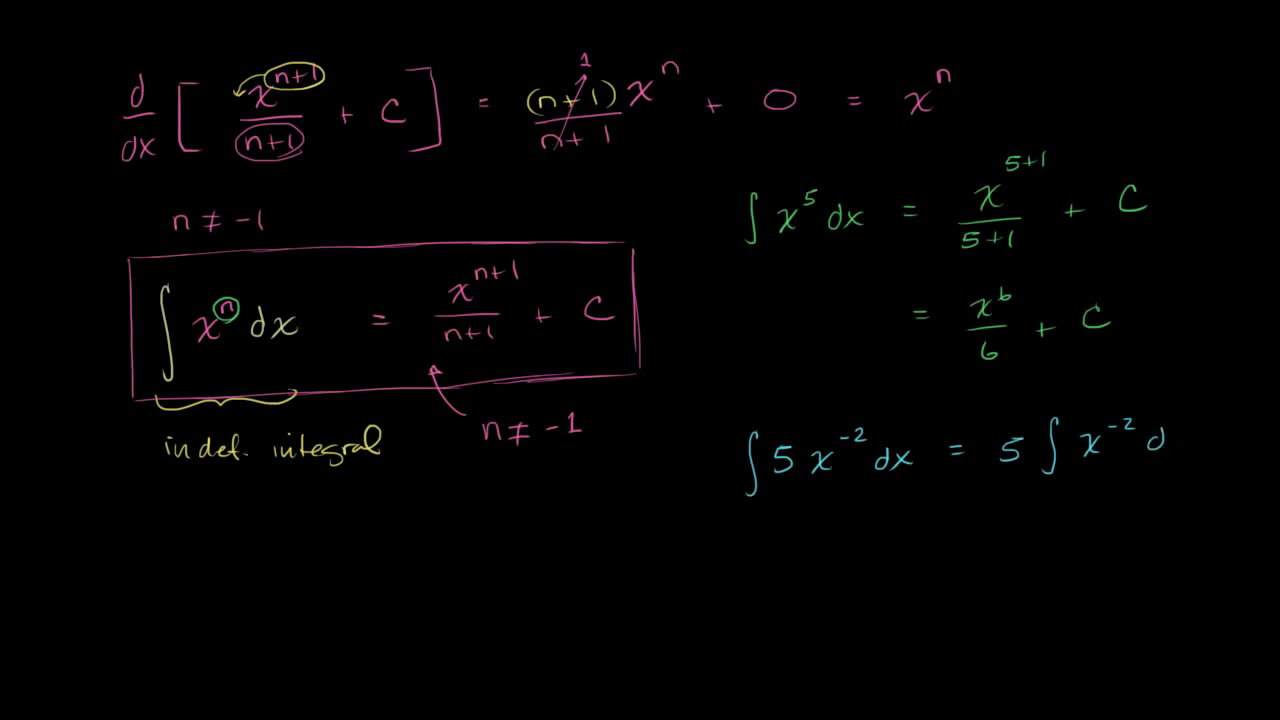 d/dx [ x^(n+1)/(n+1) + C ] = (n+1)x^n/(n+1) + 0 = x^n
1
n ≠ -1
∫ x^n dx = x^(n+1)/(n+1) + C
n ≠ -1
indef. integral
∫ x^5 dx = x^(5+1)/(5+1) + C
= x^6/6 + C
∫ 5 x^-2 dx = 5 ∫ x^-2 d